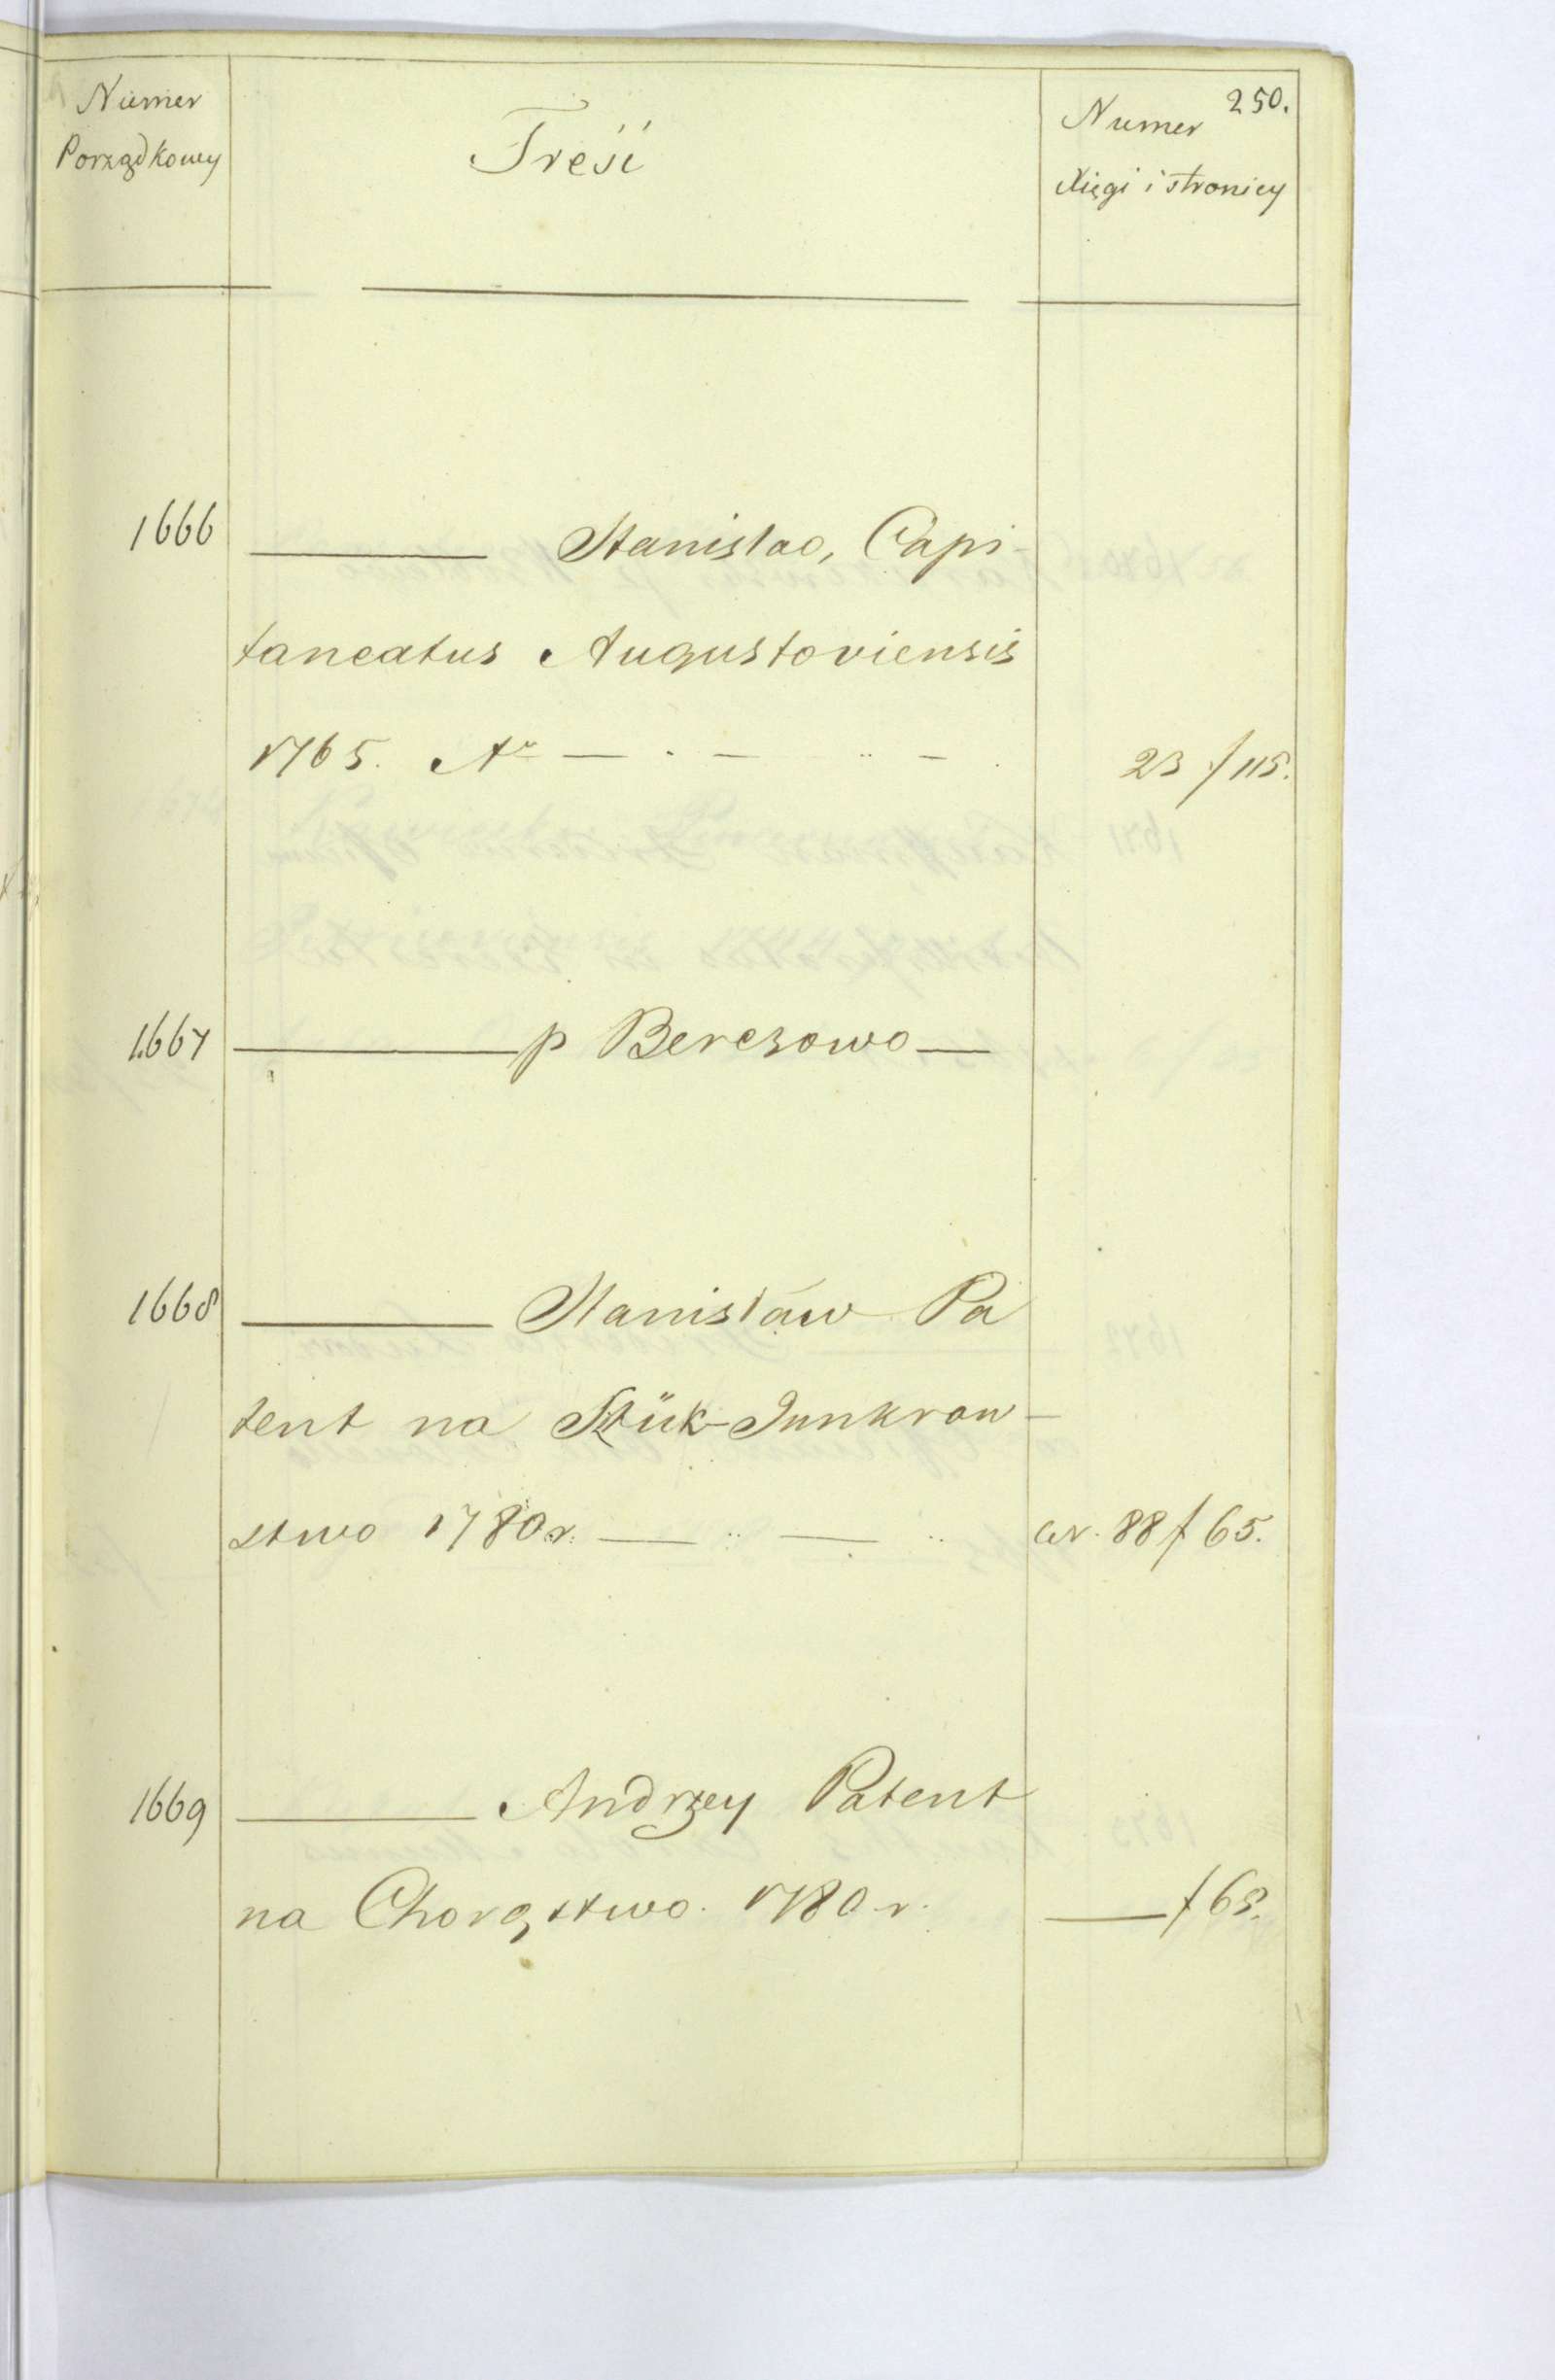 250.
Numer
Porządkowy
Treść
Numer
Xięgi i stronicy
1666 ——— Stanislao, Capi-
taneatus Augustoviensis
1765. Aº — . — .. — . 23 f 115.
1667 ——— p Berezowo —
1668 ——— Stanisław Pa
tent na Sztük-Junkraw-
stwo 1780 r. — .. — .. W. 88 f 65.
1669 ——— Andrzey Patent
na Chorąstwo. 1780 r. ——— f 65.